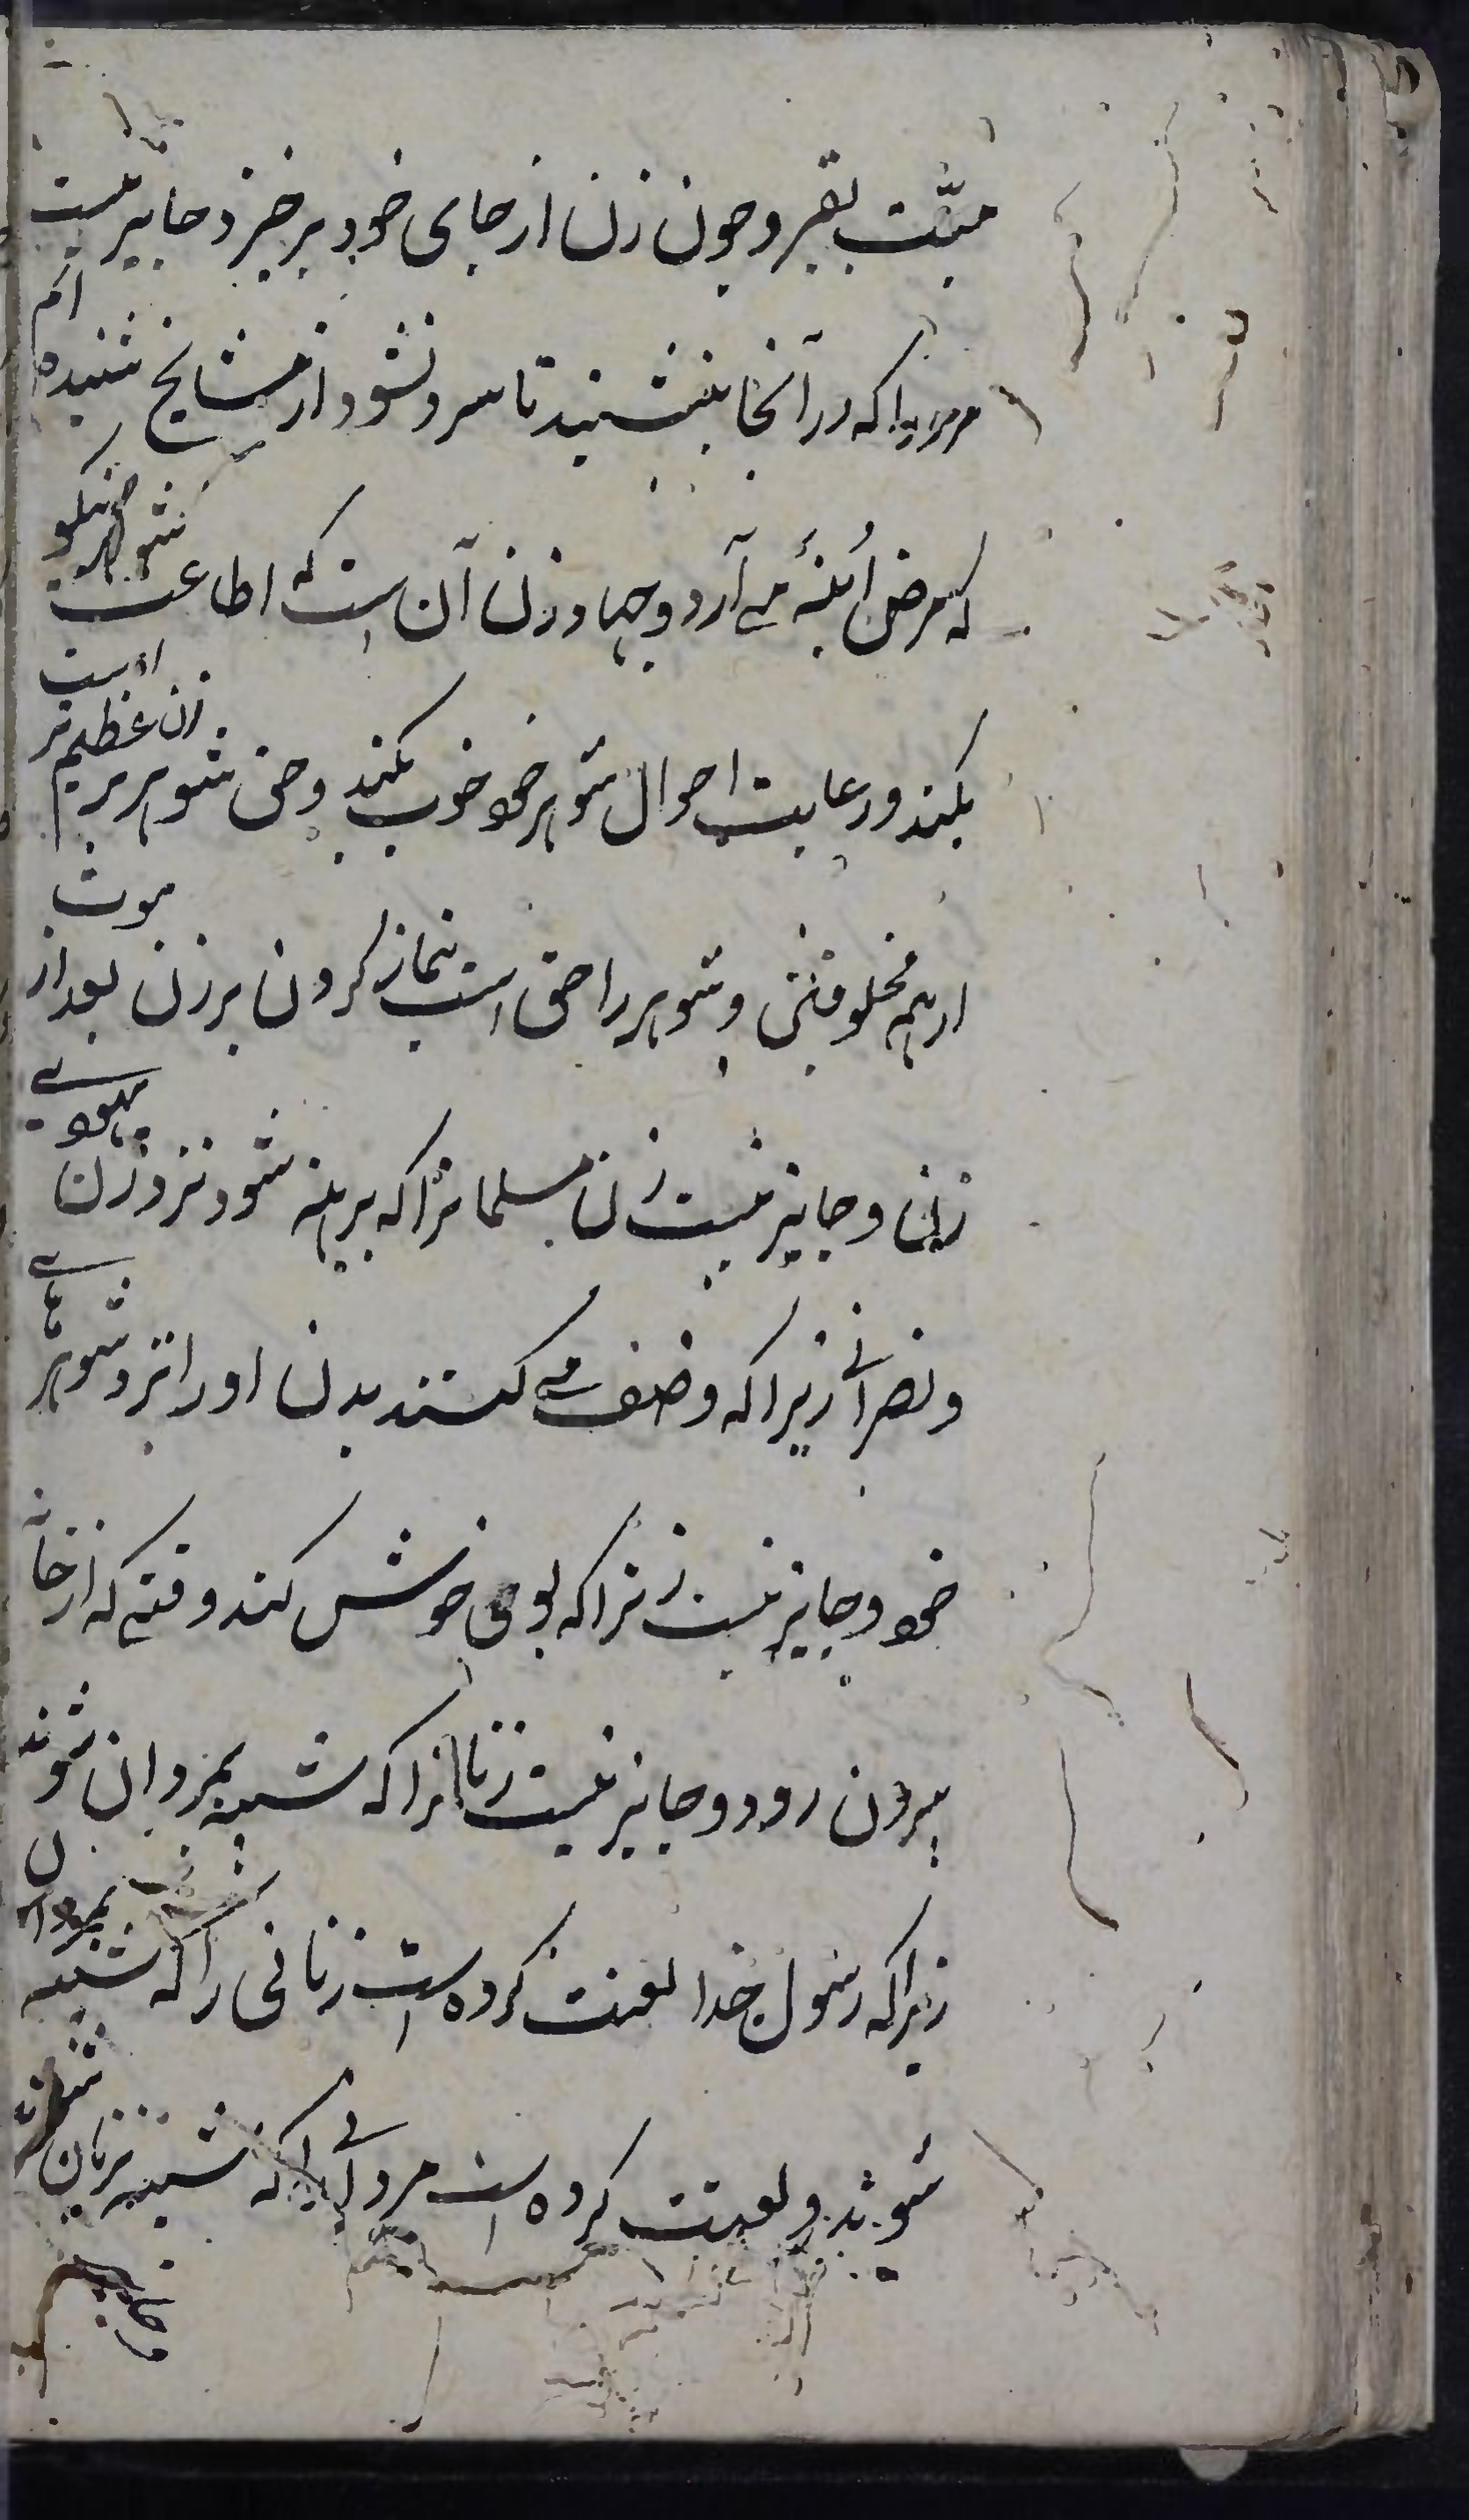 میّت بقبر و چون زن از جای خود برخیزد جایز نیست
مرد را که در آنجا بنشیند تا سرد نشود از مشایخ شنیده ام
که مرض اُبنهٔ مے آرد و جهاد زن آن است که اطاعت شوهر نیکو
بکند و رعایت احوال شوهر خود خوب بکند و حق شوهر بر زن عظیم تر است
از همه مخلوقتی و شوهر را حق است نماز کردن بر زن بعد از موت
زنی و جایز نیست زن مسلمانرا که برهنه شود نزد زن یهودیے
و نصرانے زیرا که وصف مے کنند بدن او را نزد شوهرهاے
خود و جایز نیست زنرا که بوی خوش کند وقتے که از خانه
بیرون رود و جایز نیست زنانرا که شبیه بمردان شوند
زیرا که رسول خدا لعنت کرده است زنانی را که شبیه بمردان
شوند و لعنت کرده است مردانے را که شبیه بزنان شوند
و جایز